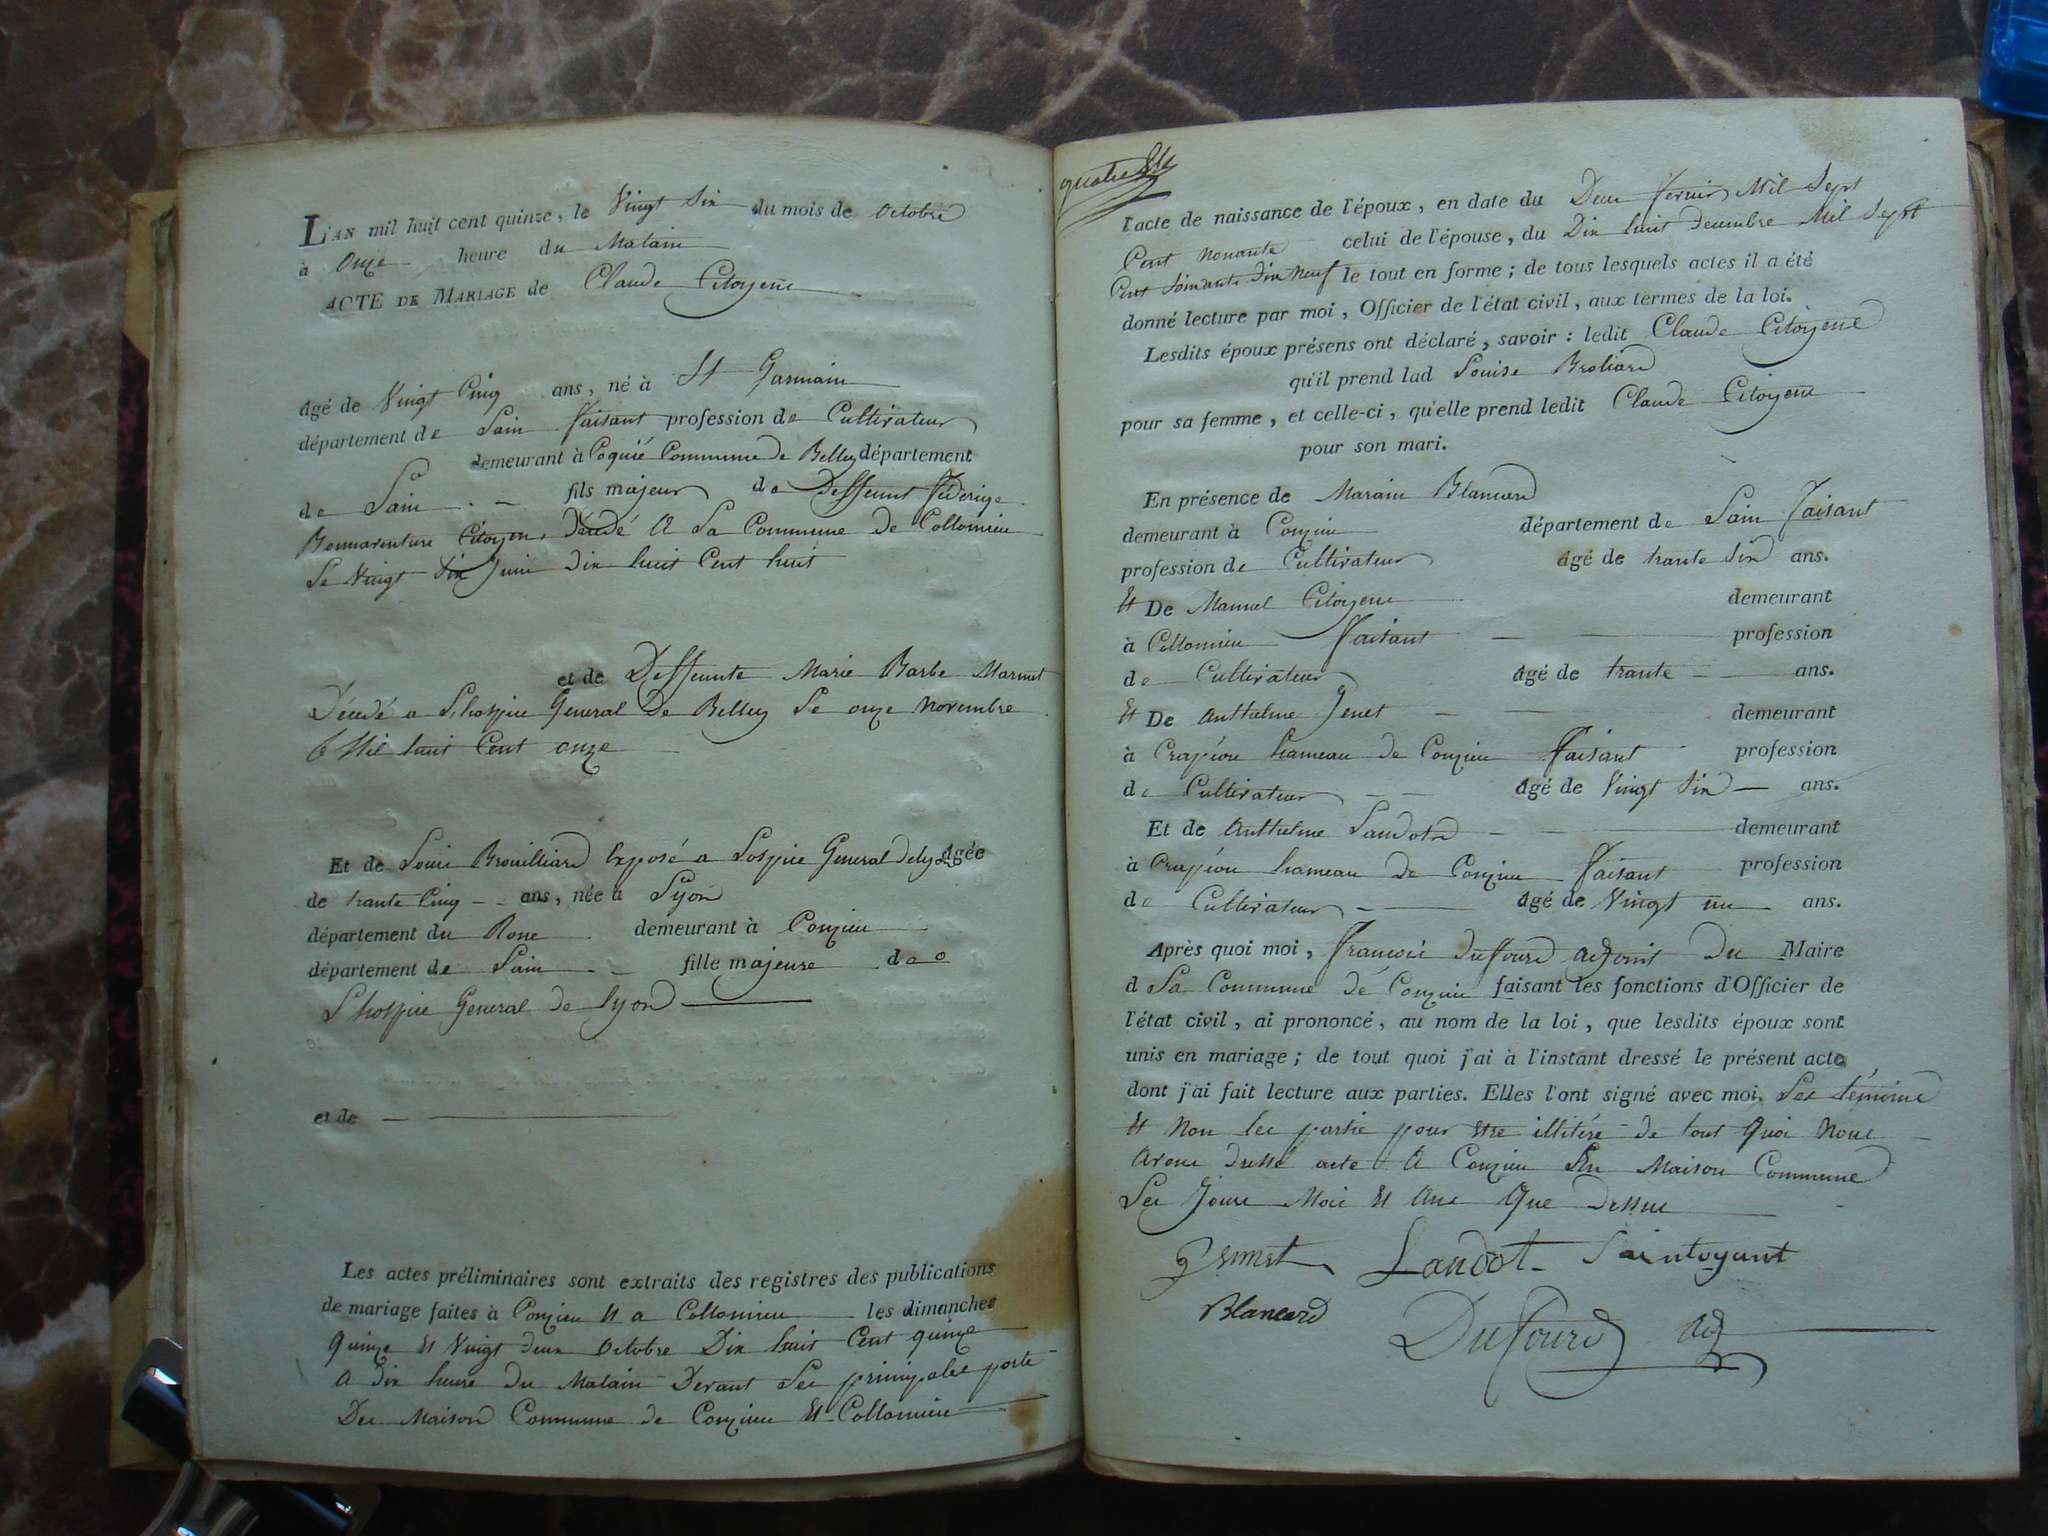 L'AN mil huit cent quinze, le Vingt Six du mois de Octobre
à Onze heure du Matain
ACTE DE MARIAGE de Claude Citoyene
agé de Vingt Cinq ans, né à St Garmain
département de Lain faisant profession de Cultivateur
demeurant à Coquié Commune de Belley département
de Lain fils majeur de Deffeunt
Bonnaventure Citoyen, Décédé A La Commune de Collomieu
Le Vingt Six Juin Dix huit Cent huit
et de Deffeunte Marie Barbe Marmet
Décedé a Lhospice General De Belley Le onze Novembre
Mil huit Cent onze
Et de Louise Brouilliard Exposé a Lospice General de lyon agée
de trante Cinq ans, née à Lyon
département du Rone demeurant à Conzieu
département de Lain fille majeure de
Lhospice General de Lyon
et de
Les actes préliminaires sont extraits des registres des publications
de mariage faites à Conzieu Et a Collomieu les dimanches
quinze Et Vingt deux Octobre Dix huit Cent quinze
A dix heure du Matain Devant Les principales porte
Des Maison Commune de Conzieu Et Collomieu
l'acte de naissance de l'époux, en date du Deux fevrier Mil Sept
Cent Nonante celui de l'épouse, du Dix huit decembre Mil Sept
Cent Soixante dix neuf le tout en forme; de tous lesquels actes il a été
donné lecture par moi, Officier de l'état civil, aux termes de la loi.
Lesdits époux présens ont déclaré, savoir: ledit Claude Citoyene
qu'il prend lad Louise Broliard
pour sa femme, et celle-ci, qu'elle prend ledit Claude Citoyene
pour son mari.
En présence de Marain Blancard
demeurant à Conzieu département de Lain faisant
profession de Cultivateur agé de trante Six ans.
Et De Manuel Citoyene demeurant
à Collomieu faisant profession
de Cultivateur agé de trante ans.
Et De Anthelme Jenet demeurant
à Crapéou hameau de Conzieu faisant profession
de Cultivateur agé de Vingt Six ans.
Et de Anthelme Landot demeurant
à Crapéou hameau de Conzieu faisant profession
de Cultivateur agé de Vingt un ans.
Après quoi moi, François Duffourd adjoint Du Maire
d La Commune de Conzieu faisant les fonctions d'Officier de
l'état civil, ai prononcé, au nom de la loi, que lesdits époux sont
unis en mariage; de tout quoi j'ai à l'instant dressé le présent acte
dont j'ai fait lecture aux parties. Elles l'ont signé avec moi, Les témoins
Et Non les partie pour Etre illitéré de tout quoi Nous
Avons dressé acte A Conzieu En Maison Commune
Les Jours Mois Et Ans Que dessus
Landot Saintoyant
Blancard
Duffourd adj